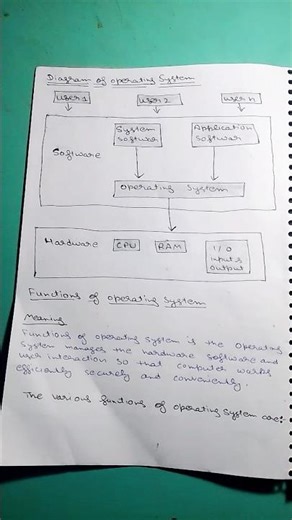 Diagram of operating System
user 1 user 2 user n
System Software Application Software
Software
Operating System
Hardware CPU RAM I/O inputs output
Functions of operating System
Meaning
Functions of operating System is the Operating
System manages the hardware software and
user interaction so that computer works
efficiently securely and conveniently.
The various funtions of operating System are:-